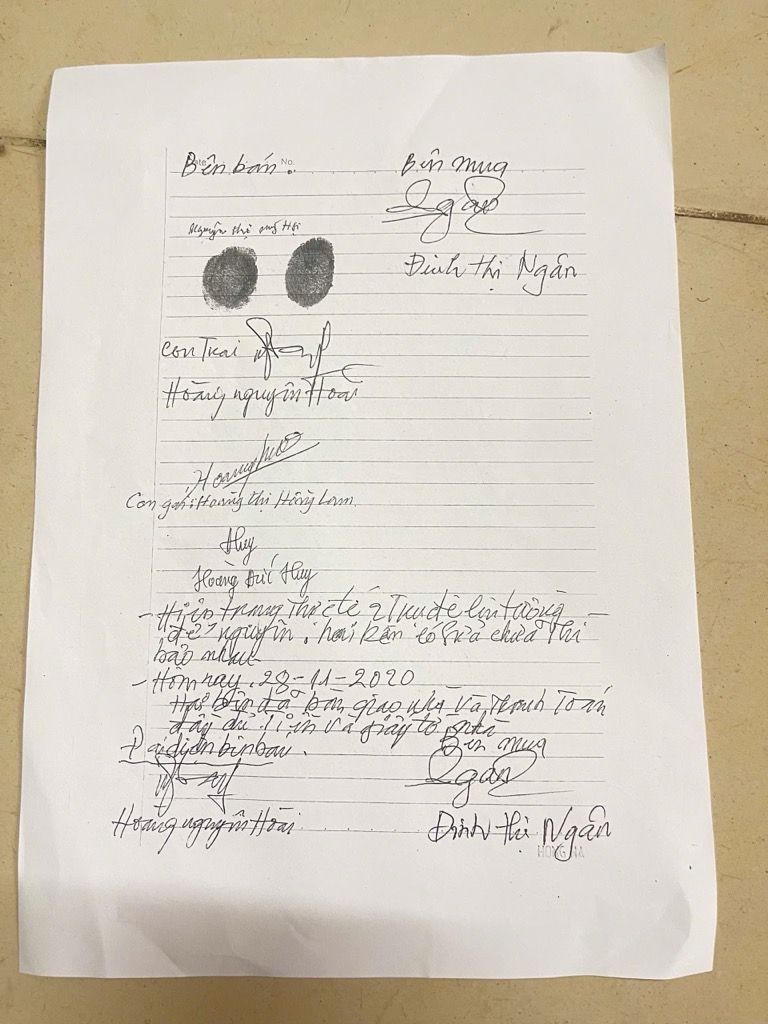 Date No.
Bên bán. Bên mua
Ngân
Nguyễn thị Hợi
Đinh thị Ngân
Con Trai
Hoàng nguyên Hoài
Hoàng
Con gái: Hoàng thị Hồng Lam
Huy
Hoàng Đức Huy
- Hiện trạng thực tế
để nguyên, hai bên có sửa chữa thì
bảo nhau
- Hôm nay. 28-11-2020
Hai bên đã bàn giao nhà và thanh Toán
đầy đủ tiền và giấy tờ nhà
Đại diện bên bán. Bên mua
Ngân
Hoàng nguyên Hoài. Đinh thị Ngân
HONG HA